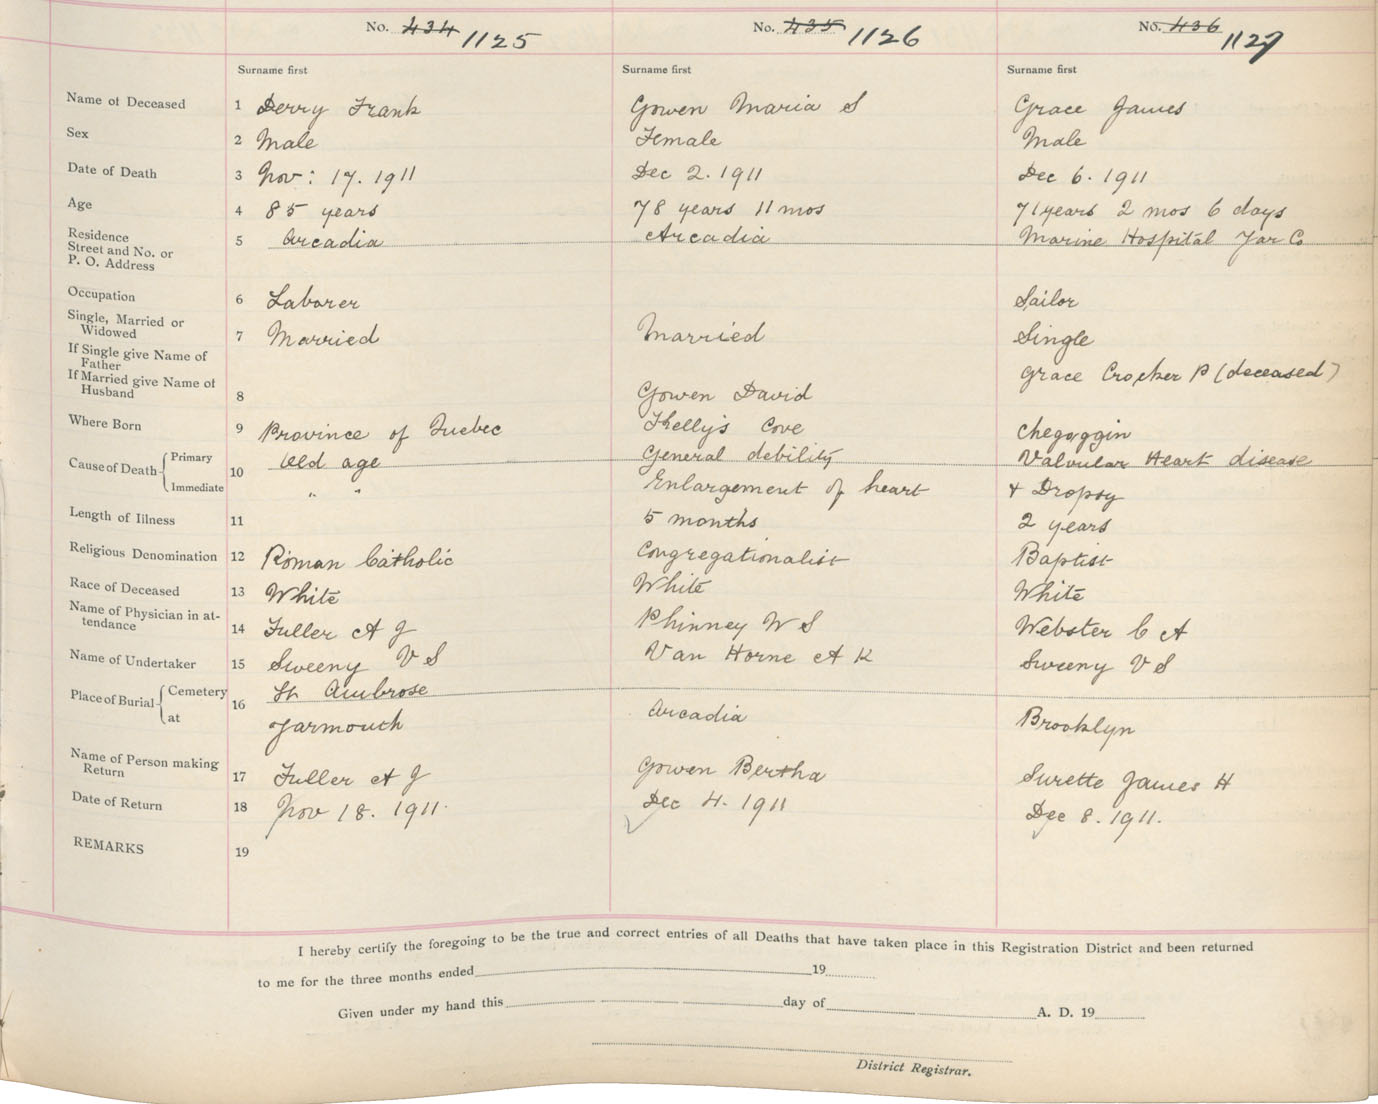 No. 434 1125 No. 435 1126 No. 436 1127
Surname first Surname first Surname first
Name of Deceased 1 Derry Frank Gowen Maria S Grace James
Sex 2 Male Female Male
Date of Death 3 Nov: 17. 1911 Dec 2. 1911 Dec 6. 1911
Age 4 85 years 78 years 11 mos 71 years 2 mos 6 days
Residence
Street and No. or
P. O. Address 5 Arcadia Arcadia Marine Hospital Yar Co
Occupation 6 Laborer Sailor
Single, Married or
Widowed 7 Married Married Single
If Single give Name of
Father Grace Crocker P (deceased)
If Married give Name of
Husband 8 Gowen David
Where Born 9 Province of Quebec Kelly's Cove Chegoggin
Cause of Death Primary 10 Old age General debility Valvular Heart disease
Immediate " " Enlargement of heart + Dropsy
Length of Illness 11 5 months 2 years
Religious Denomination 12 Roman Catholic Congregationalist Baptist
Race of Deceased 13 White White White
Name of Physician in at-
tendance 14 Fuller A J Phinney W S Webster C A
Name of Undertaker 15 Sweeny V S Van Horne A K Sweeny V S
Place of Burial Cemetery 16 St Ambrose
at Yarmouth Arcadia Brooklyn
Name of Person making
Return 17 Fuller A J Gowen Bertha Surette James H
Date of Return 18 Nov 18. 1911. Dec 4. 1911 Dec 8. 1911.
REMARKS 19
I hereby certify the foregoing to be the true and correct entries of all Deaths that have taken place in this Registration District and been returned
to me for the three months ended 19
Given under my hand this day of A. D. 19
District Registrar.